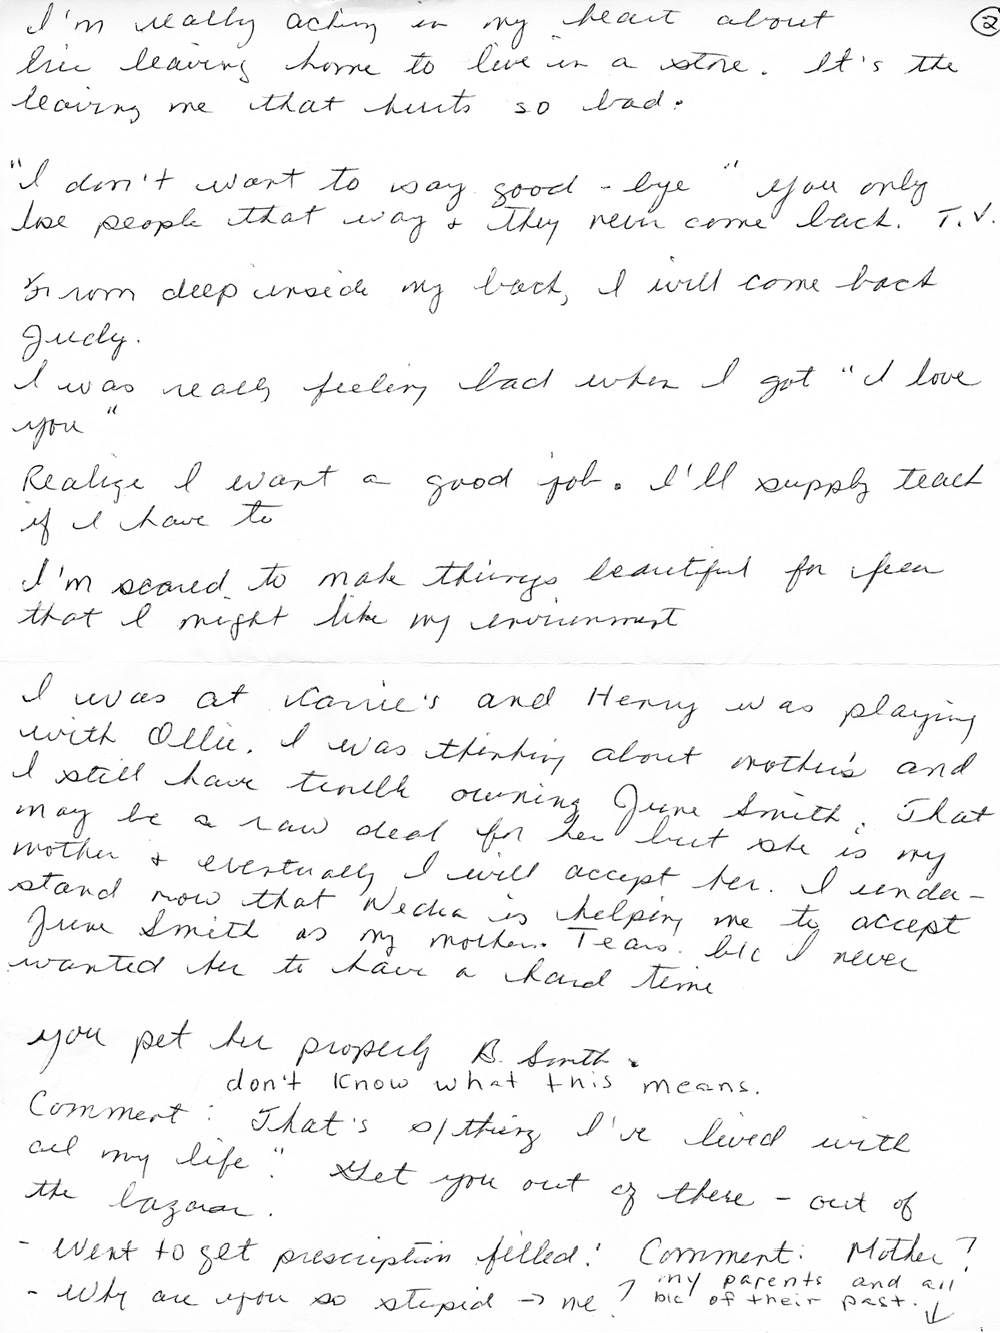 I'm really aching in my heart about
②
Eric leaving home to live in a store. It's the
leaving me that hurts so bad.
"I don't want to say good-bye" you only
lose people that way & they never come back. T.V.
From deep inside my back, I will come back
Judy.
I was really feeling bad when I got "I love
you"
Realize I want a good job. I'll supply teach
if I have to
I'm scared to make things beautiful for fear
that I might like my environment
I was at Karrie's and Henry was playing
with Ollie. I was thinking about mother's and
I still have trouble owning June Smith. That
may be a raw deal for her but she is my
mother & eventually I will accept her. I under-
stand now that Necka is helping me to accept
June Smith as my mother. Tears. b/c I never
wanted her to have a hard time
you pet her properly B. Smith.
don't know what this means.
Comment: That's s/thing I've lived with
all my life". Get you out of there - out of
the bazaar.
- Went to get prescription filled! Comment: Mother?
- Why are you so stupid → me?
my parents and all
b/c of their past. ↓